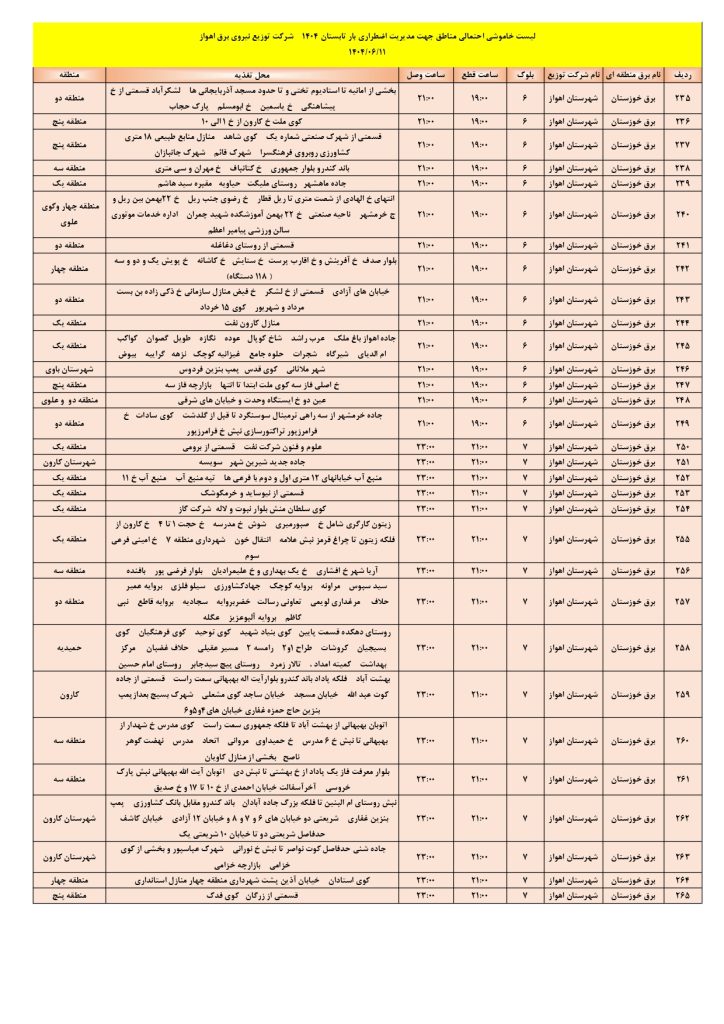 لیست خاموشی احتمالی مناطق جهت مدیریت اضطراری بار تابستان ۱۴۰۴ شرکت توزیع نیروی برق اهواز
۱۴۰۴/۰۶/۱۱
ردیف نام برق منطقه ای نام شرکت توزیع بلوک ساعت قطع ساعت وصل محل تغذیه منطقه
۲۳۵ برق خوزستان شهرستان اهواز ۶ ۱۹:۰۰ ۲۱:۰۰ بخشی از امانیه تا استادیوم تختی و تا حدود مسجد آذربایجانی ها لشکرآباد قسمتی از خ منطقه دو
پیشاهنگی خ یاسمین خ ابومسلم پارک حجاب
۲۳۶ برق خوزستان شهرستان اهواز ۶ ۱۹:۰۰ ۲۱:۰۰ کوی ملت خ کارون از خ ۱الی ۱۰ منطقه پنج
۲۳۷ برق خوزستان شهرستان اهواز ۶ ۱۹:۰۰ ۲۱:۰۰ قسمتی از شهرک صنعتی شماره یک کوی شاهد منازل منابع طبیعی ۱۸ متری منطقه پنج
کشاورزی روبروی فرهنگسرا شهرک قائم شهرک جانبازان
۲۳۸ برق خوزستان شهرستان اهواز ۶ ۱۹:۰۰ ۲۱:۰۰ باند کندرو بلوار جمهوری خ کتانباف خ مهران و سی متری منطقه سه
۲۳۹ برق خوزستان شهرستان اهواز ۶ ۱۹:۰۰ ۲۱:۰۰ جاده ماهشهر روستای ملیگت حیاویه مقبره سید هاشم منطقه یک
۲۴۰ برق خوزستان شهرستان اهواز ۶ ۱۹:۰۰ ۲۱:۰۰ انتهای خ الهادی از شصت متری تا ریل قطار خ رضوی جنب ریل خ ۲۲بهمن بین ریل و منطقه چهار وکوی علوی
ج خرمشهر ناحیه صنعتی خ ۲۲ بهمن آموزشکده شهید چمران اداره خدمات موتوری
سالن ورزشی پیامبر اعظم
۲۴۱ برق خوزستان شهرستان اهواز ۶ ۱۹:۰۰ ۲۱:۰۰ قسمتی از روستای دغاغله منطقه دو
۲۴۲ برق خوزستان شهرستان اهواز ۶ ۱۹:۰۰ ۲۱:۰۰ بلوار صدف خ آفرینش و خ اقارب پرست خ ستایش خ کاشانه خ پویش یک و دو و سه منطقه چهار
( ۱۱۸ دستگاه)
۲۴۳ برق خوزستان شهرستان اهواز ۶ ۱۹:۰۰ ۲۱:۰۰ خیابان های آزادی قسمتی از خ لشکر خ فیض منازل سازمانی خ ذکی زاده بن بست منطقه دو
مرداد و شهریور کوی ۱۵ خرداد
۲۴۴ برق خوزستان شهرستان اهواز ۶ ۱۹:۰۰ ۲۱:۰۰ منازل کارون نفت منطقه یک
۲۴۵ برق خوزستان شهرستان اهواز ۶ ۱۹:۰۰ ۲۱:۰۰ جاده اهواز باغ ملک عرب راشد شاخ کوپال عوده نگازه طویل گصوان کواکب منطقه یک
ام الدبای شیرگاه شجرات حلوه جامع غیزانیه کوچک نزهه گرایبه بیوض
۲۴۶ برق خوزستان شهرستان اهواز ۶ ۱۹:۰۰ ۲۱:۰۰ شهر ملاثانی کوی قدس پمپ بنزین فردوس شهرستان باوی
۲۴۷ برق خوزستان شهرستان اهواز ۶ ۱۹:۰۰ ۲۱:۰۰ خ اصلی فاز سه کوی ملت ابتدا تا انتها بازارچه فاز سه منطقه پنج
۲۴۸ برق خوزستان شهرستان اهواز ۶ ۱۹:۰۰ ۲۱:۰۰ عین دو خ ایستگاه وحدت و خیابان های شرقی منطقه دو و علوی
۲۴۹ برق خوزستان شهرستان اهواز ۶ ۱۹:۰۰ ۲۱:۰۰ جاده خرمشهر از سه راهی ترمینال سوسنگرد تا قبل از گلدشت کوی سادات خ منطقه دو
فرامرزپور تراکتورسازی نبش خ فرامرزپور
۲۵۰ برق خوزستان شهرستان اهواز ۷ ۲۱:۰۰ ۲۳:۰۰ علوم و فنون شرکت نفت قسمتی از برومی منطقه یک
۲۵۱ برق خوزستان شهرستان اهواز ۷ ۲۱:۰۰ ۲۳:۰۰ جاده جدید شیرین شهر سویسه شهرستان کارون
۲۵۲ برق خوزستان شهرستان اهواز ۷ ۲۱:۰۰ ۲۳:۰۰ منبع آب خیابانهای ۱۲ متری اول و دوم با فرعی ها تپه منبع آب منبع آب خ ۱۱ منطقه یک
۲۵۳ برق خوزستان شهرستان اهواز ۷ ۲۱:۰۰ ۲۳:۰۰ قسمتی از نیوساید و خرمکوشک منطقه یک
۲۵۴ برق خوزستان شهرستان اهواز ۷ ۲۱:۰۰ ۲۳:۰۰ کوی سلطان منش بلوار نبوت و لاله شرکت گاز منطقه یک
۲۵۵ برق خوزستان شهرستان اهواز ۷ ۲۱:۰۰ ۲۳:۰۰ زیتون کارگری شامل خ صبورمیری شوش خ مدرسه خ حجت ۱ تا ۴ خ کارون از منطقه یک
فلکه زیتون تا چراغ قرمز نبش علامه انتقال خون شهرداری منطقه ۷ خ امینی فرعی
سوم
۲۵۶ برق خوزستان شهرستان اهواز ۷ ۲۱:۰۰ ۲۳:۰۰ آریا شهر خ افشاری خ یک بهداری و خ علیمرادیان بلوار قرضی پور بافنده منطقه سه
۲۵۷ برق خوزستان شهرستان اهواز ۷ ۲۱:۰۰ ۲۳:۰۰ سید سبوس مراونه بروایه کوچک جهادکشاورزی سیلو فلزی بروایه عمیر منطقه دو
حلاف مرغداری لویمی تعاونی رسالت خضربروایه سجادیه بروایه قاطع نبی
کاظم بروایه آلبوعزیز عگله
۲۵۸ برق خوزستان شهرستان اهواز ۷ ۲۱:۰۰ ۲۳:۰۰ روستای دهکده قسمت پایین کوی بنیاد شهید کوی توحید کوی فرهنگیان کوی حمیدیه
بسیجیان کروشات طراح ۱و۲ رامسه ۲ مسیر عقیلی حلاف غضبان مرکز
بهداشت کمیته امداد . تالار زمرد روستای پیچ سیدجابر روستای امام حسین
۲۵۹ برق خوزستان شهرستان اهواز ۷ ۲۱:۰۰ ۲۳:۰۰ بهشت آباد فلکه پاداد باند کندرو بلوارآیت اله بهبهانی سمت راست قسمتی از جاده کارون
کوت عبد الله خیابان مسجد خیابان ساجد کوی مشعلی شهرک بسیج بعدازپمپ
بنزین حاج حمزه غفاری خیابان های۴و۵و۶
۲۶۰ برق خوزستان شهرستان اهواز ۷ ۲۱:۰۰ ۲۳:۰۰ اتوبان بهبهانی از بهشت آباد تا فلکه جمهوری سمت راست کوی مدرس خ شهدار از منطقه سه
بهبهانی تا نبش خ ۶ مدرس خ حمیداوی مروانی اتحاد مدرس نهضت گوهر
ناصح بخشی از منازل گاوبان
۲۶۱ برق خوزستان شهرستان اهواز ۷ ۲۱:۰۰ ۲۳:۰۰ بلوار معرفت فاز یک پاداد از خ بهشتی تا نبش دی اتوبان آیت الله بهبهانی نبش پارک منطقه سه
خروسی آخرآسفالت خیابان احمدی از خ ۱۰ تا ۱۷ و خ صدیق
۲۶۲ برق خوزستان شهرستان اهواز ۷ ۲۱:۰۰ ۲۳:۰۰ نبش روستای ام البنین تا فلکه بزرگ جاده آبادان باند کندرو مقابل بانک کشاورزی پمپ شهرستان کارون
بنزین غفاری شریعتی دو خیابان های ۶ و ۷ و ۸ و خیابان ۱۲ آزادی خیابان کاشف
حدفاصل شریعتی دو تا خیابان ۱۰ شریعتی یک
۲۶۳ برق خوزستان شهرستان اهواز ۷ ۲۱:۰۰ ۲۳:۰۰ جاده شنی حدفاصل کوت نواصر تا نبش خ نورانی شهرک عباسپور و بخشی از کوی شهرستان کارون
خزامی بازارچه خزامی
۲۶۴ برق خوزستان شهرستان اهواز ۷ ۲۱:۰۰ ۲۳:۰۰ کوی استادان خیابان آذین پشت شهرداری منطقه چهار منازل استانداری منطقه چهار
۲۶۵ برق خوزستان شهرستان اهواز ۷ ۲۱:۰۰ ۲۳:۰۰ قسمتی از زرگان کوی فدک منطقه پنج